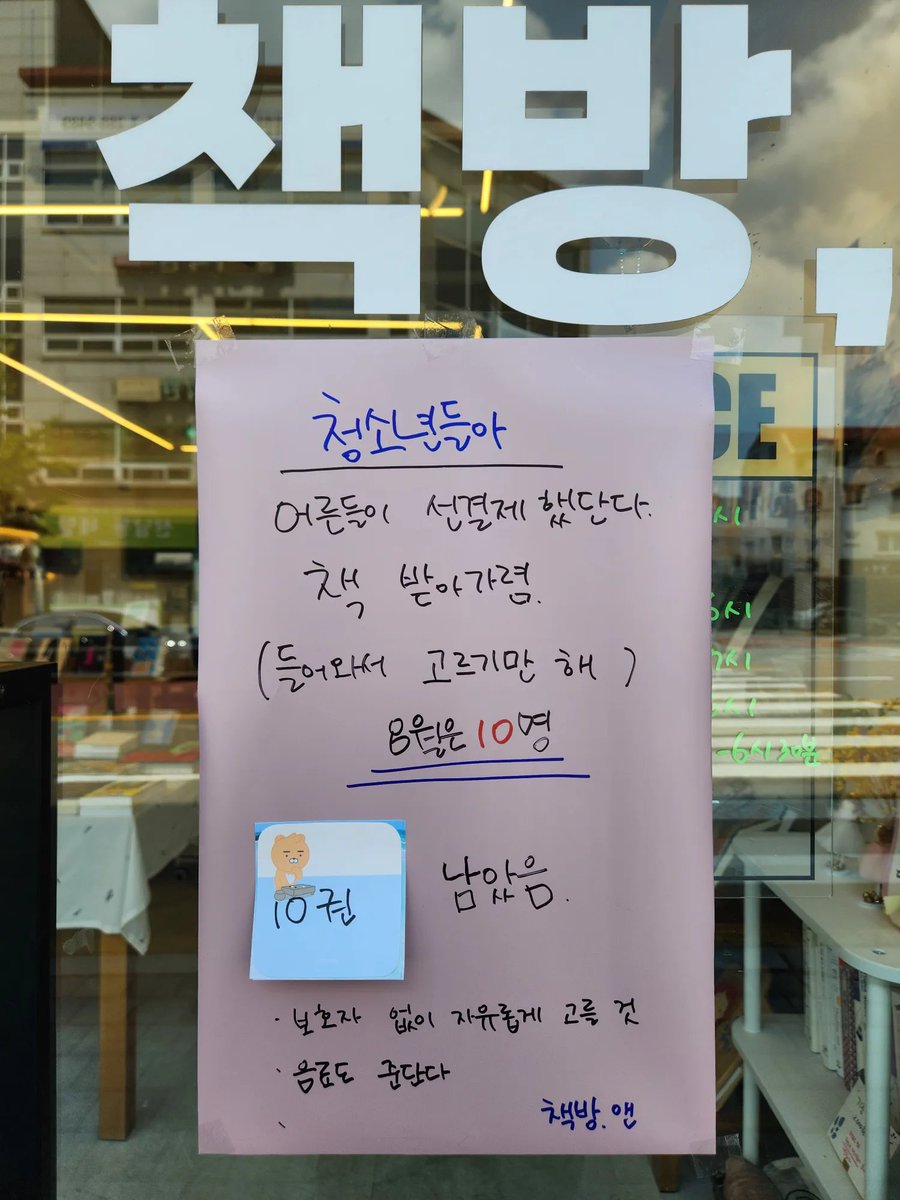 책방,
청소년들아
어른들이 선결제 했단다.
책 받아가렴.
(들어와서 고르기만 해)
8월은 10명
10권 남았음.
· 보호자 없이 자유롭게 고를 것
· 음료도 준단다
·
책방.앤
CE
시
6시
7시
시
-6시 30분